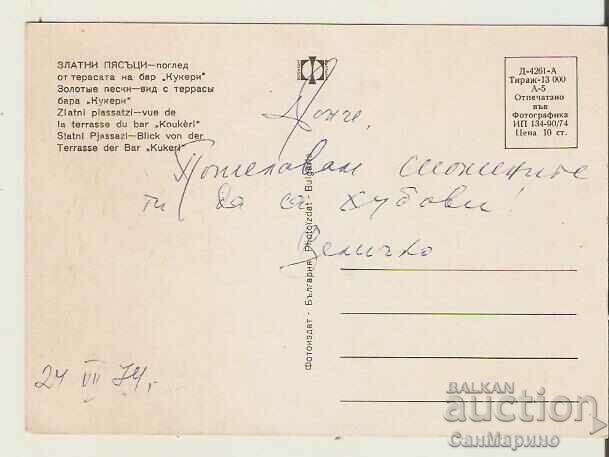 ЗЛАТНИ ПЯСЪЦИ—поглед
от терасата на бар „Кукери"
Золотые пески—вид с террасы
бара „Кукери"
Zlatni piassatzi—vue de
la terrasse du bar „Koukèri"
Slatni Pjassazi—Blick von der
Terrasse der Bar „Kukeri"
Д-4261-А
Тираж-13 000
А-5
Отпечатано
във
Фотографика
ИП 134-90/74
Цена 10 ст.
Пожелавам
ти да са хубави!
Величко
Фотоиздат - България Photoizdat - Bulgarie
24 VII 74 г.
BALKAN
auction
СанМарино